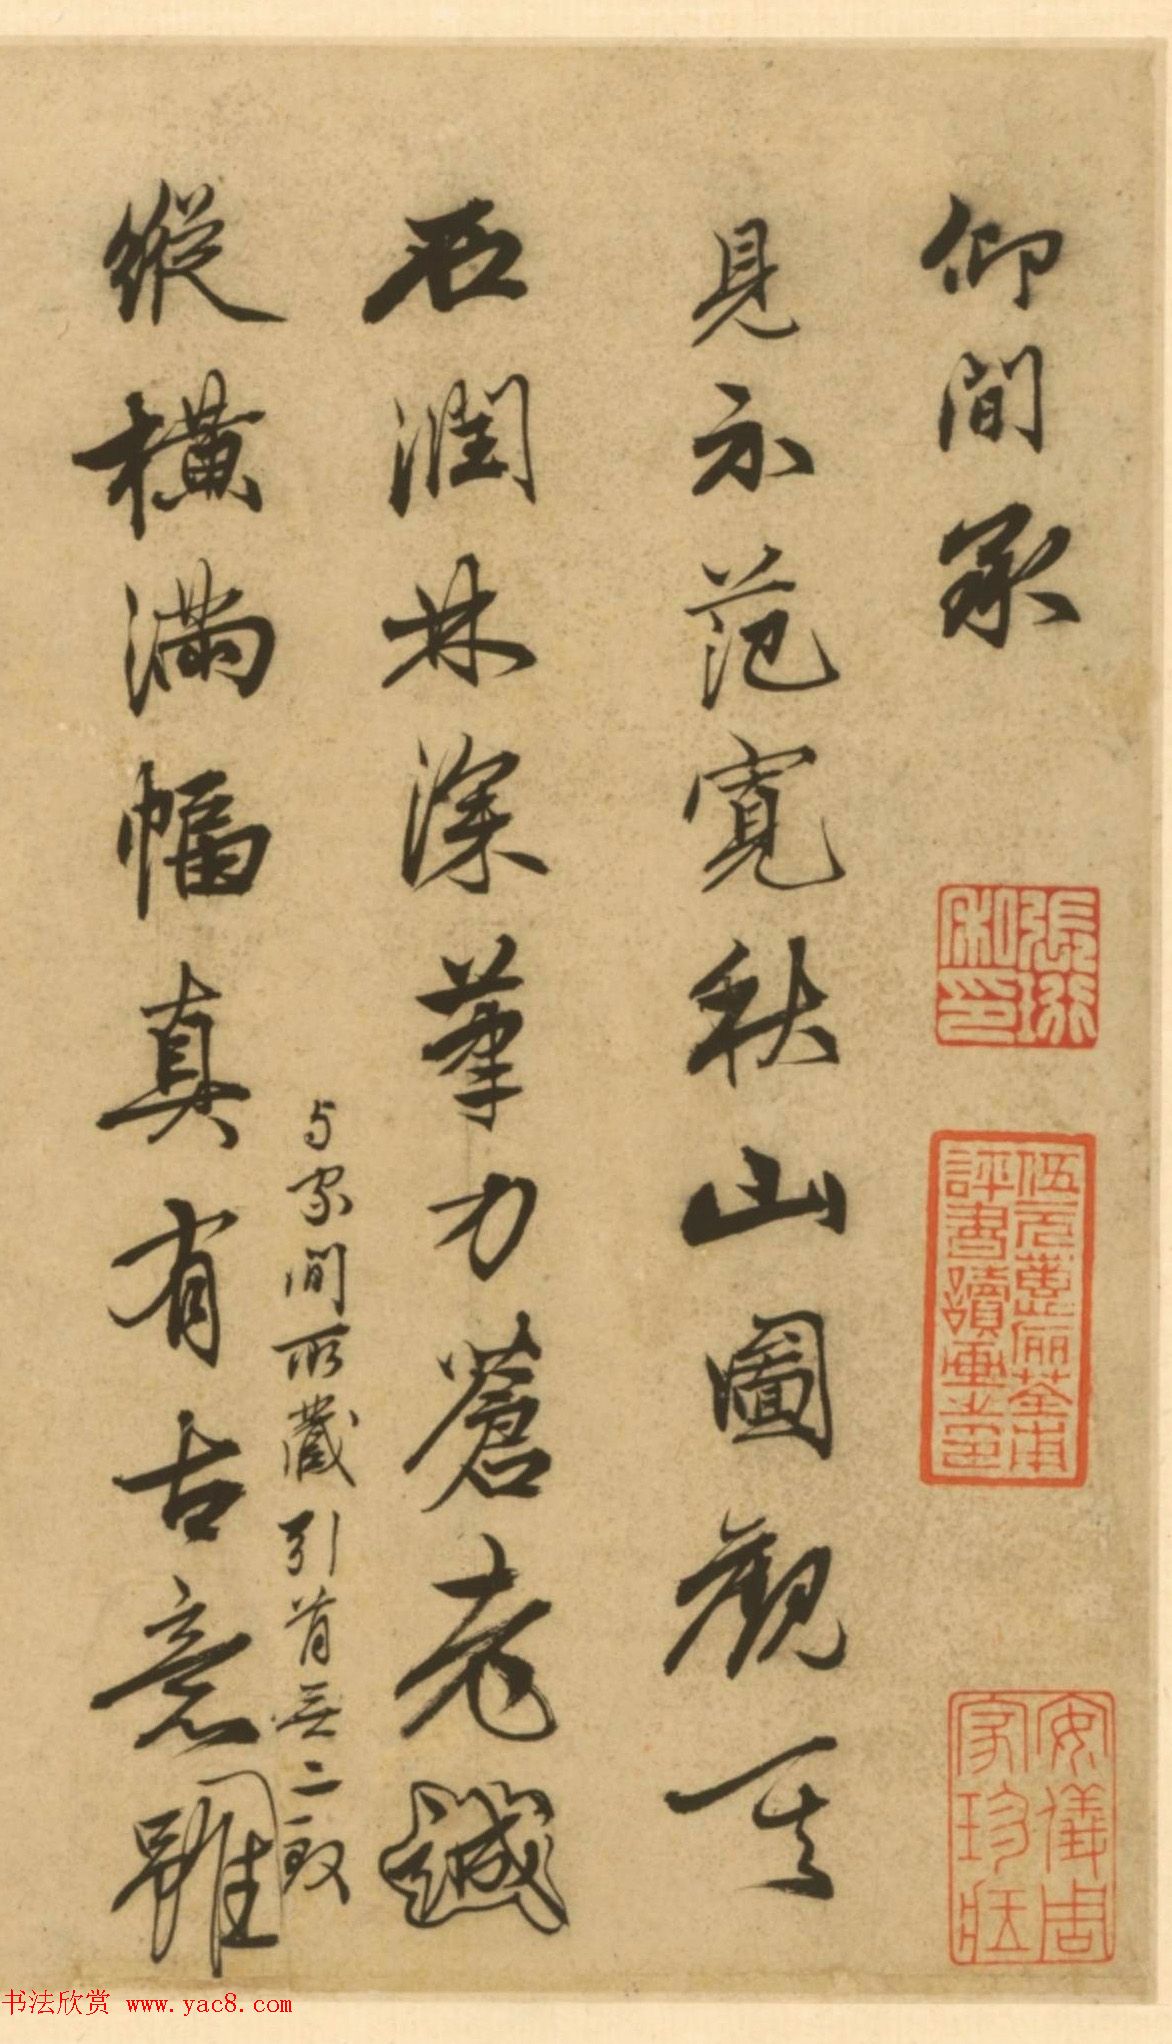 仰間承
張珩私印
伍元蕙儷荃甫
評書讀畫之印
安儀周
家珍藏
見示范寬秋山圖觀其
石潤林深筆力蒼老誠
与家間所藏引首無二致
縱橫滿幅真有古意雖
书法欣赏 www.yac8.com